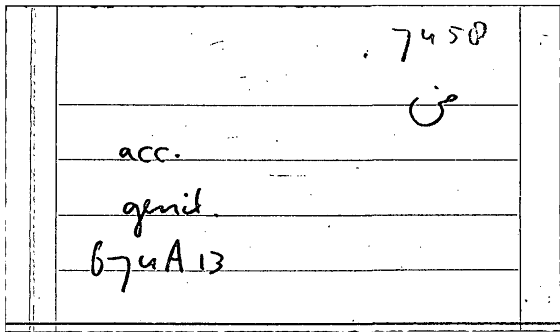 7458
من
acc.
genit.
674A13